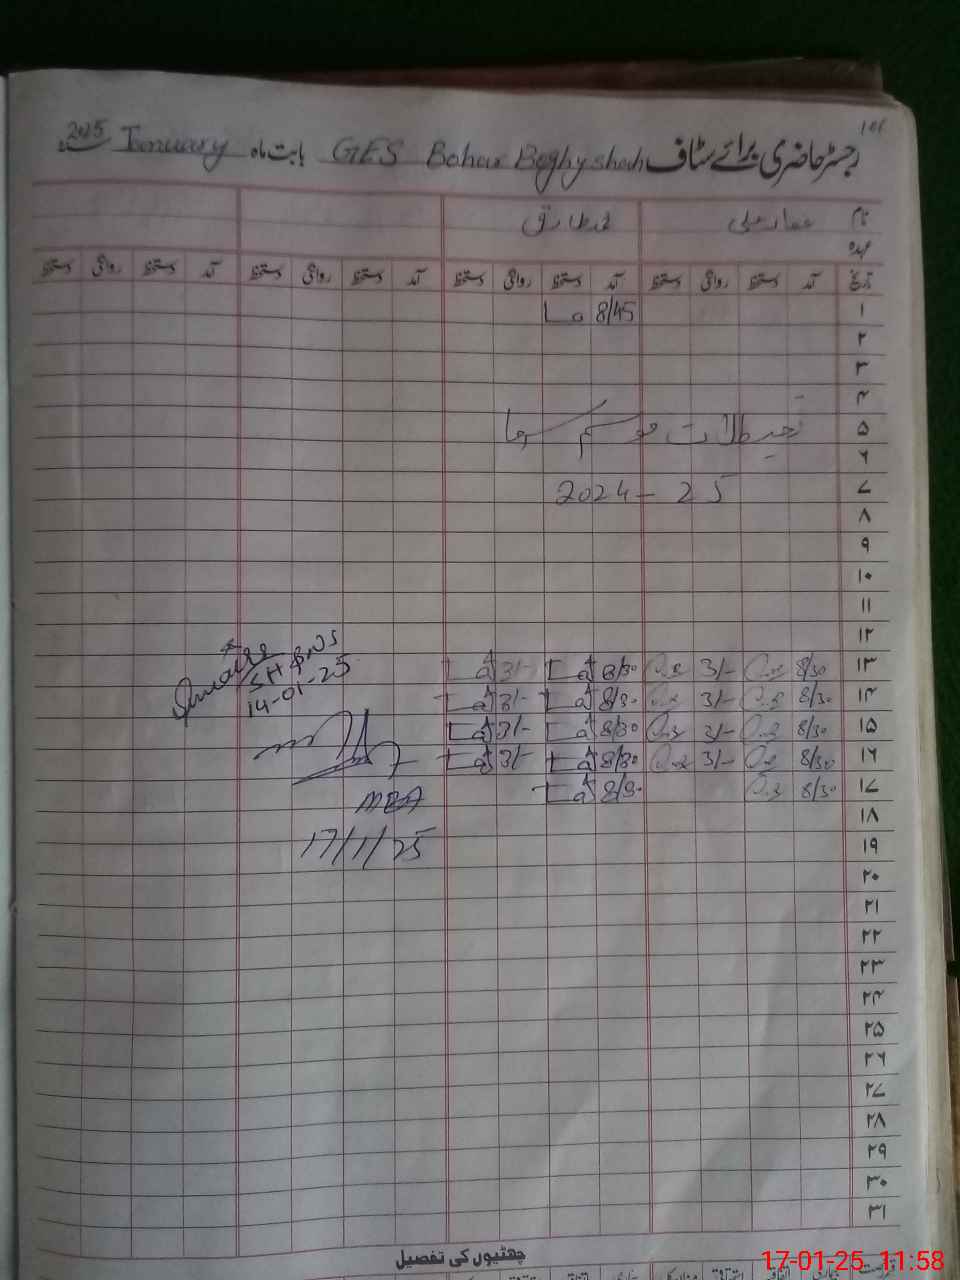 101
رجسٹر حاضری برائے سٹاف GES Bahar Beghy shah بابت ماہ January 2025
نام عمار علی محمد طارق
عہدہ
تاریخ آمد دستخط روانگی دستخط آمد دستخط روانگی دستخط آمد دستخط روانگی دستخط آمد دستخط روانگی دستخط
۱ 8/45
۲
۳
۴
۵ تعطیلات موسم سرما
۶
۷ 2024 - 25
۸
۹
۱۰
۱۱
۱۲
۱۳ 8/30 3/- 8/30 3/-
۱۴ 8/30 3/- 8/30 3/-
۱۵ 8/30 3/- 8/30 3/-
۱۶ 8/30 3/- 8/30 3/-
۱۷ 8/30 8/30
14-01-25
۱۸
۱۹ 17/1/25
۲۰
۲۱
۲۲
۲۳
۲۴
۲۵
۲۶
۲۷
۲۸
۲۹
۳۰
۳۱
چھٹیوں کی تفصیل
17-01-25 11:58